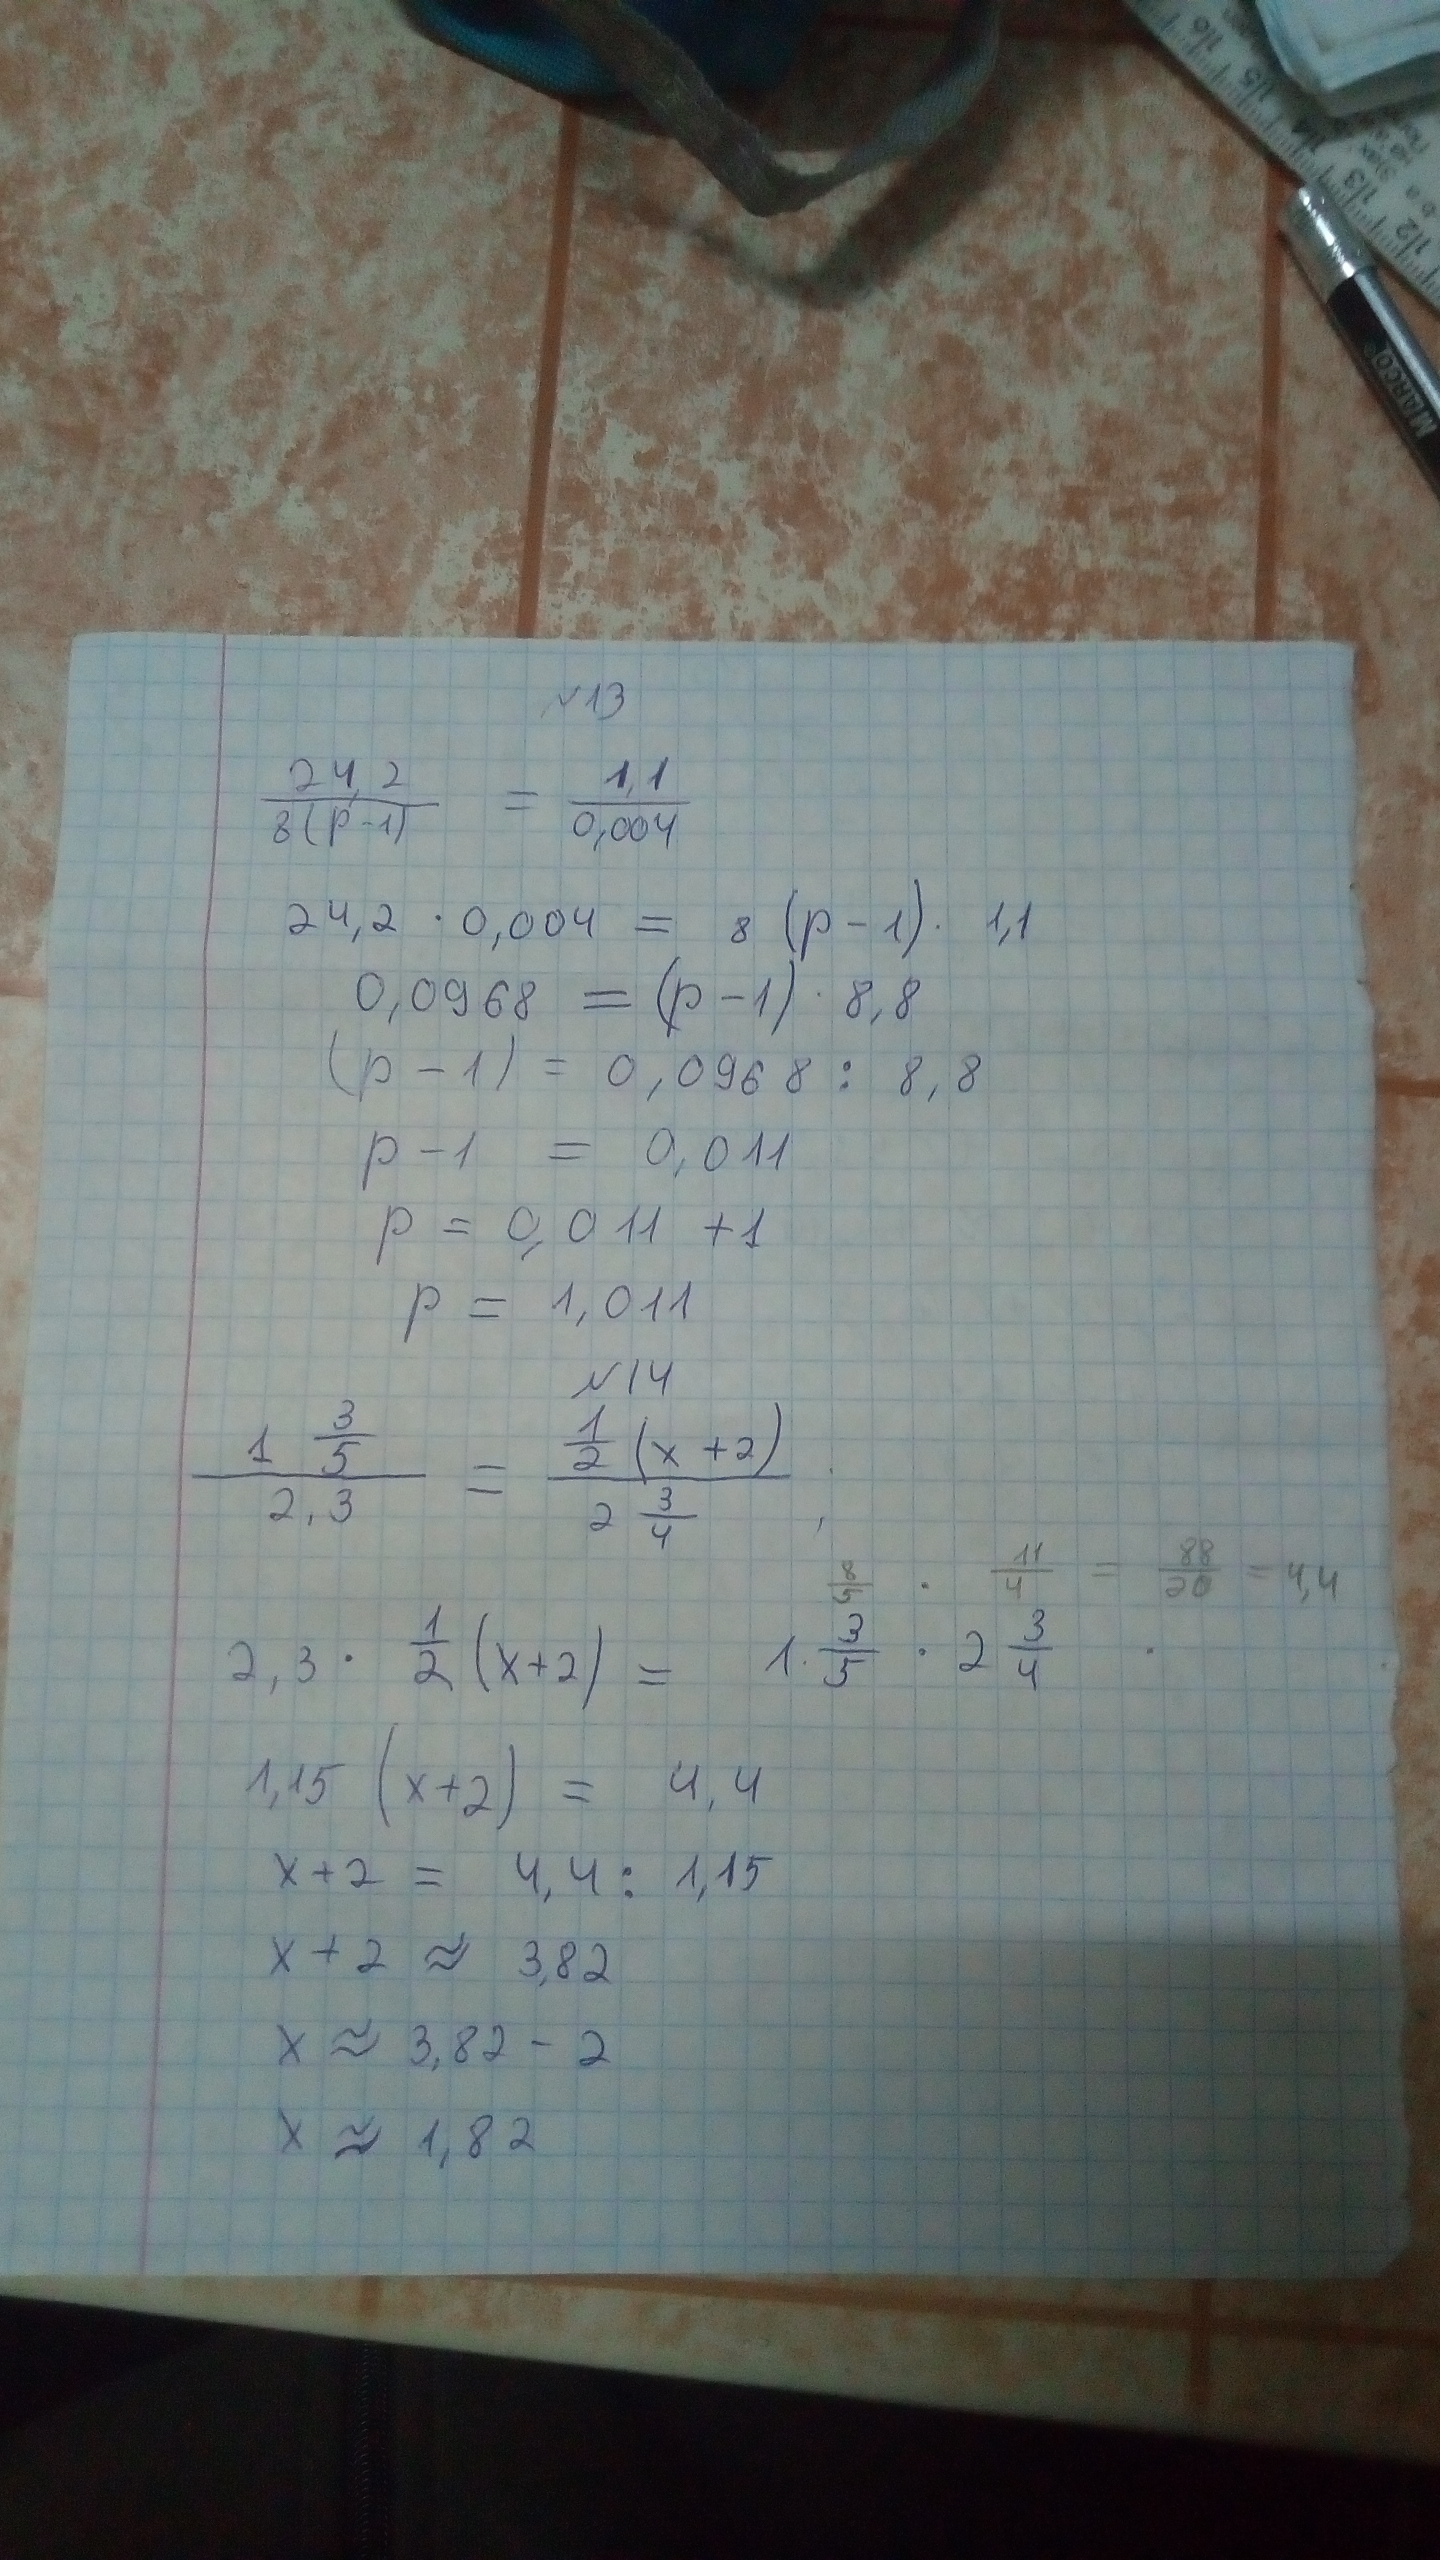 116
115
114
113
112
MARCO
№13
24,2 / 8(p-1) = 1,1 / 0,004
24,2 · 0,004 = 8 (p-1) · 1,1
0,0968 = (p-1) · 8,8
(p-1) = 0,0968 : 8,8
p-1 = 0,011
p = 0,011 +1
p = 1,011
№14
1 3/5 / 2,3 = 1/2 (x+2) / 2 3/4
8/5 · 11/4 = 88/20 = 4,4
2,3 · 1/2 (x+2) = 1 · 3/5 · 2 3/4
1,15 (x+2) = 4,4
x+2 = 4,4 : 1,15
x+2 ≈ 3,82
x ≈ 3,82 - 2
x ≈ 1,82